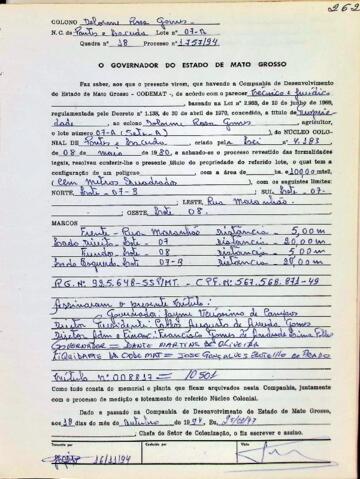 262
COLONO Delorme Rosa Gomes
N.C. de Pontes e Lacerda Lote nº 07-A
Quadra nº 18 Processo nº 1.757/94
O GOVERNADOR DO ESTADO DE MATO GROSSO
Faz saber, aos que o presente virem, que havendo a Companhia de Desenvolvimento
do Estado de Mato Grosso - CODEMAT -, de acordo com o parecer Técnico e Jurídico
, baseado na Lei nº 2.983, de 10 de junho de 1968,
regulamentada pelo Decreto nº 1.138, de 30 de abril de 1970, concedido, a título de
dade, ao colono Delorme Rosa Gomes, agricultor,
o lote número 07-A (Sete A), do NÚCLEO COLO-
NIAL DE Pontes e Lacerda, criado pela Lei nº 4.183
de 08 de maio de 1980, e achando-se o processo revestido das formalidades
legais, resolveu conferir-lhe o presente título de propriedade do referido lote, o qual tem a
configuração de um polígono com a área de ha 100,00 mts2,
(Cem Metros Quadrados), com os seguintes limites:
NORTE, Lote 07-B; SUL, Lote 07-
; LESTE, Rua Maranhão
; OESTE, Lote 08.
MARCOS
Frente - Rua Maranhão distância - 5,00m
Lado Direito - Lote - 07 distância - 20,00m
Fundos - Lote 08 distância - 5,00m
Lado Esquerdo - Lote 07-B distância - 20,00m
R.G. Nº 925.648-SSP/MT. - C.P.F. Nº 567.568.871-49
Assinaram o presente título:
O Governador: Jayme Veríssimo de Campos
Diretor Presidente: Carlos Augusto de Arruda Gomes
Diretor Adm e Financ: Francisco Gomes de Andrade Lima Filho
GOVERNADOR = DANTE MARTINS DE OLIVEIRA
LIQUIDANTE DA CODEMAT = JOSÉ GONÇALVES BOTELHO DO PRADO
Título nº 008817 = 10501
Tudo como consta do memorial e planta que ficam arquivados nesta Companhia, juntamente
com o processo de medição e loteamento do referido Núcleo Colonial.
Dado e passado na Companhia de Desenvolvimento do Estado de Mato Grosso,
aos 18 dias do mês de outubro de 1994. Eu,
, Chefe do Setor de Colonização, o fiz escrever e assino.
Transcrito por Conferido por Visto
16/11/94